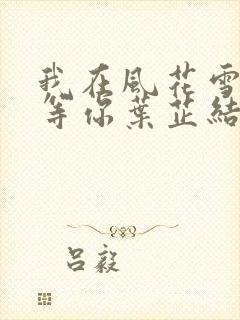 我在風花雪
等你葉芷結
呂毅